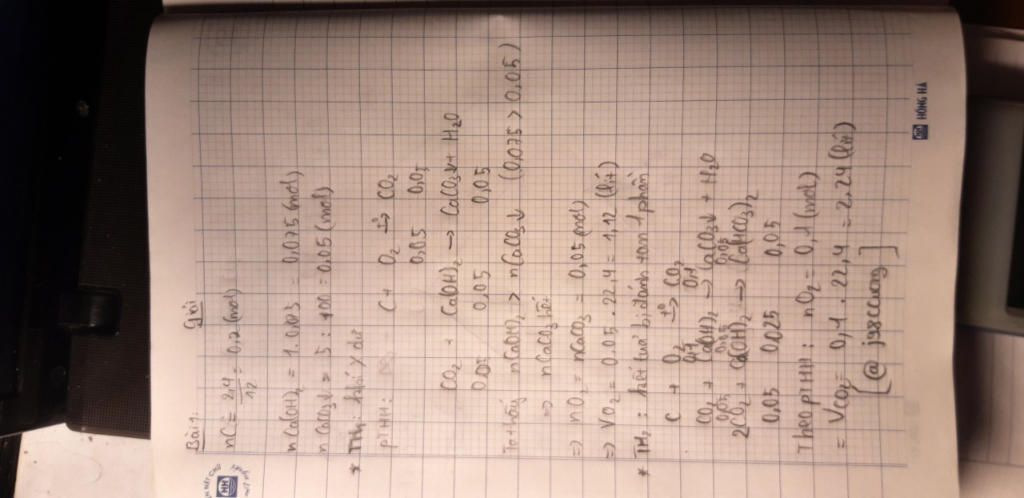 Bài 1: giải
nC = 2,4/12 = 0,2 (mol)
nCa(OH)2 = 1.0,075 = 0,075 (mol)
nCaCO3↓ = 5 : 100 = 0,05 (mol)
* TH1:
PTHH: C + O2 t°→ CO2
0,05 0,05
CO2 + Ca(OH)2 → CaCO3↓ + H2O
0,05 0,05 0,05
Ta thấy nCa(OH)2 > nCaCO3↓ (0,075 > 0,05)
⇒ nCaCO3
⇒ nO2 = nCaCO3 = 0,05 (mol)
⇒ VO2 = 0.05 . 22,4 = 1,12 (lít)
* TH2: kết tủa bị đánh tan 1 phần
C + O2 t°→ CO2
0,1 0,1
CO2 + Ca(OH)2 → CaCO3↓ + H2O
0,05 0,05 0,05
2CO2 + Ca(OH)2 → Ca(HCO3)2
0,05 0,025 0,05
Theo PTHH: nO2 = 0,1 (mol)
= VCO2 = 0,1 . 22,4 = 2.24 (lít)
HH HỒNG HÀ
HH